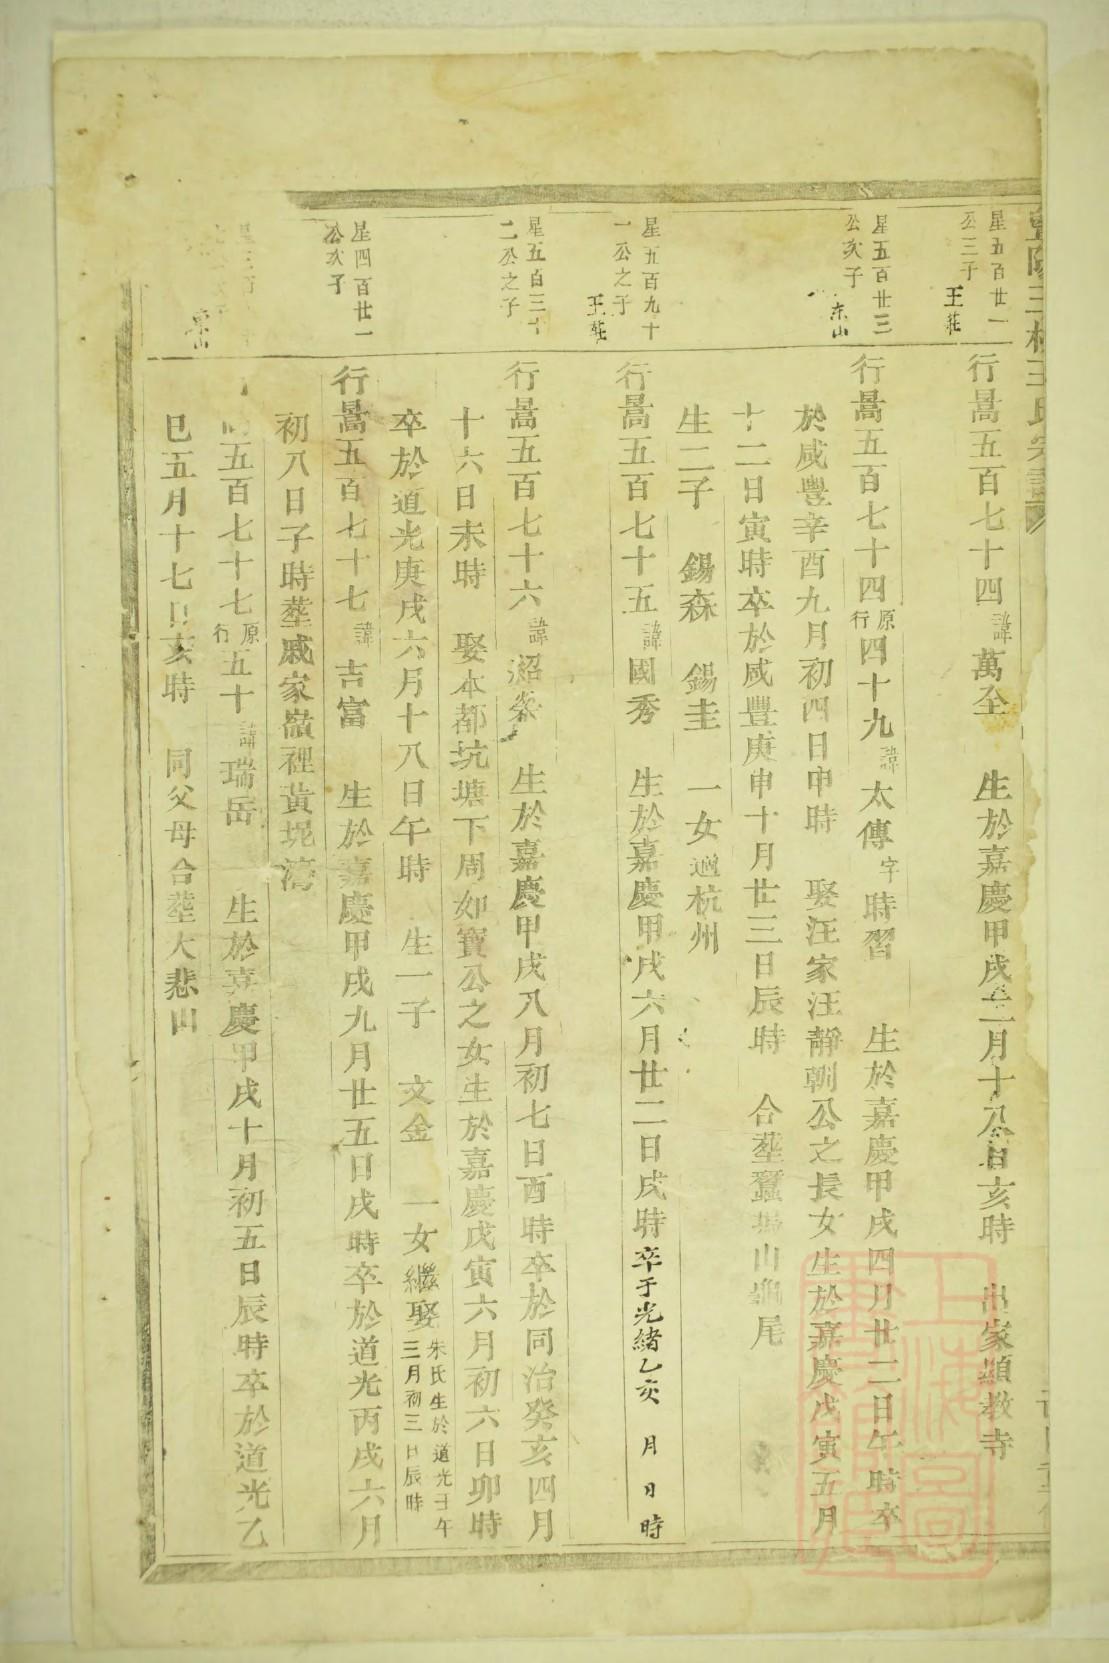 王氏宗譜
星五百廿一
公三子
王莊
行暠五百七十四諱萬全 生於嘉慶甲戌二月十八日亥時 出家顯教寺
星五百廿三
公次子
东山
行暠五百七十四原行四十九諱太傳字時習 生於嘉慶甲戌四月廿二日午時卒
於咸豐辛酉九月初四日申時 娶汪家汪靜朝公之長女生於嘉慶戊寅五月
十二日寅時卒於咸豐庚申十月廿三日辰時 合塟蠶山尾
生二子 錫森 錫圭 一女適杭州
星五百九十
一公之子
王莊
行暠五百七十五諱國秀 生於嘉慶甲戌六月廿二日戌時卒于光緒乙亥 月 日 時
星五百三十
二公之子
行暠五百七十六諱紹榮 生於嘉慶甲戌八月初七日酉時卒於同治癸亥四月
十六日未時 娶本都坑塘下周如寶公之女生於嘉慶戊寅六月初六日卯時
卒於道光庚戌六月十八日午時 生一子 文金 一女繼娶朱氏生於道光壬午三月初三日辰時
星四百廿一
公次子
行暠五百七十七諱吉富 生於嘉慶甲戌九月廿五日戌時卒於道光丙戌六月
初八日子時塟戚家嶺裡黃坭湾
東山
五百七十七原行五十諱瑞岳 生於嘉慶甲戌十月初五日辰時卒於道光乙
巳五月十七日亥時 同父母合塟大悲山